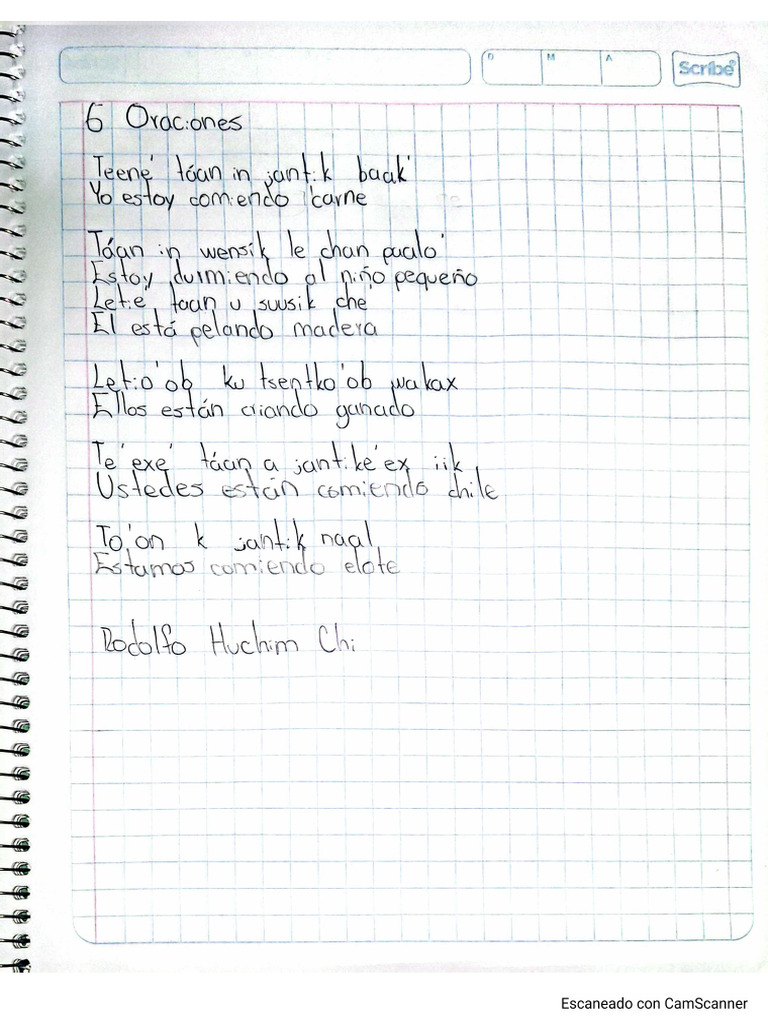 D M A
Scribe
6 Oraciones
Teene' táan in jantik baak'
Yo estoy comiendo carne
Táan in wensik le chan paalo'
Estoy durmiendo al niño pequeño
Letie' taan u suusik che'
El está pelando madera
Letio'ob ku tsentko'ob wakax
Ellos están criando ganado
Te'exe' táan a jantike'ex iik
Ustedes están comiendo chile
To'on k jantik naal
Estamos comiendo elote
Rodolfo Huchim Chi
Escaneado con CamScanner